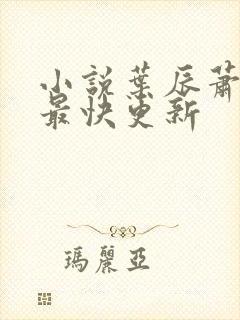 小說葉辰蕭
最快更新
瑪麗亞